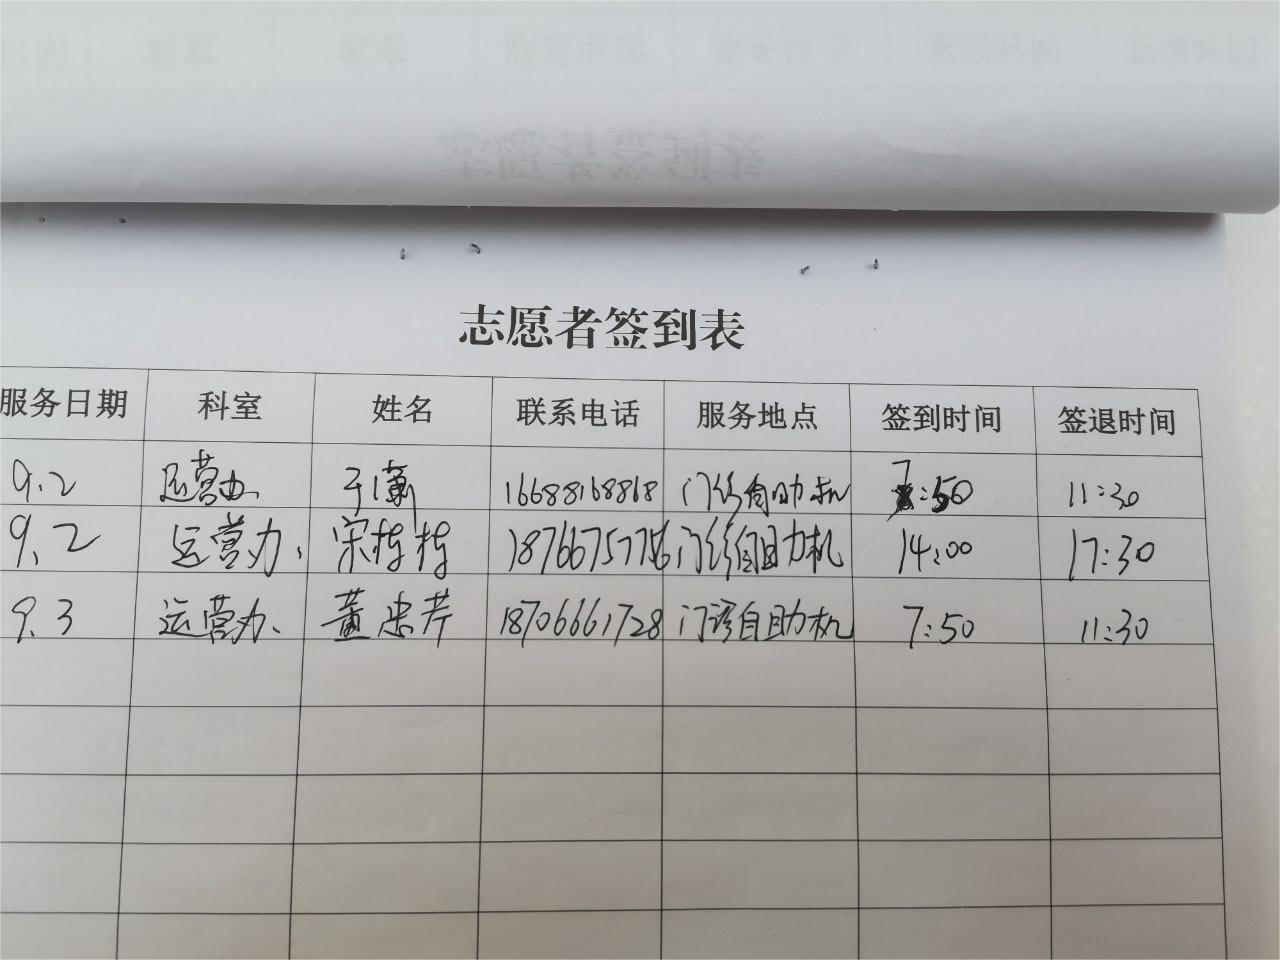 志愿者签到表
服务日期 科室 姓名 联系电话 服务地点 签到时间 签退时间
9.2 运营办 于潇 16688168868 门诊自助机 7:50 11:30
9.2 运营办、 宋栋栋 18766757756 门诊自助机 14:00 17:30
9.3 运营办、 董忠芹 18706661728 门诊自助机 7:50 11:30